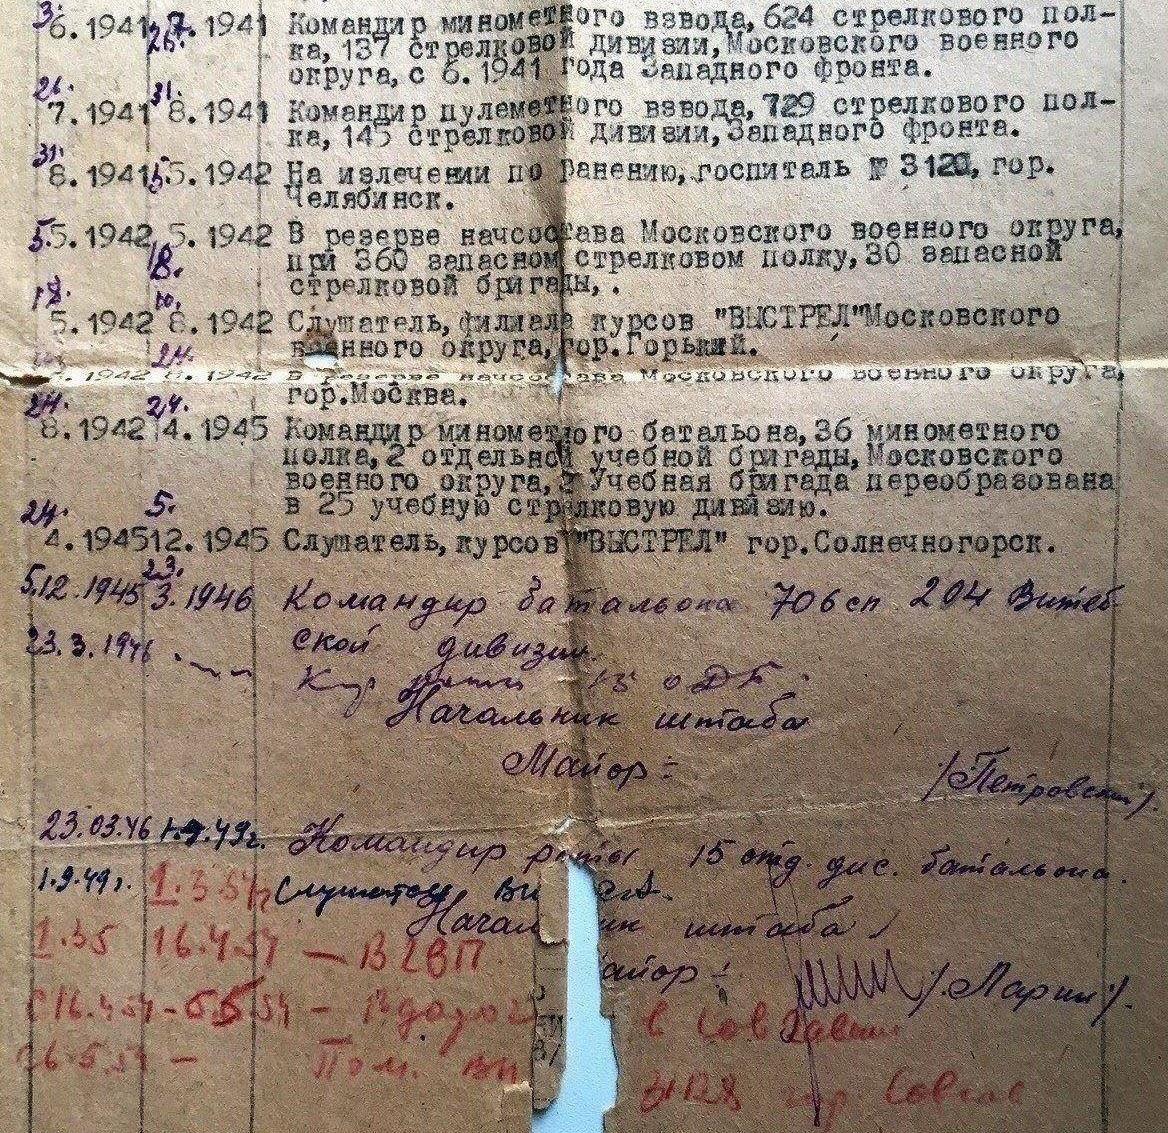 3. 7.
6.1941 26. 1941 Командир минометного взвода, 624 стрелкового пол-
ка, 137 стрелковой дивизии, Московского военного
округа, с 6.1941 года Западного фронта.
26. 31.
7.1941 8.1941 Командир пулеметного взвода, 729 стрелкового пол-
ка, 145 стрелковой дивизии, Западного фронта.
31.
8.1941 5.5.1942 На излечении по ранению, госпиталь № 3120, гор.
Челябинск.
5.5.1942 5.1942 В резерве начсостава Московского военного округа,
18.
при 360 запасном стрелковом полку, 30 запасной
стрелковой бригады,.
18. 10.
5.1942 8.1942 Слушатель, филиала курсов "ВЫСТРЕЛ" Московского
24.
военного округа, гор.Горький.
1942 1942 В резерве начсостава Московского военного округа,
гор.Москва.
24. 24.
8.1942 4.1945 Командир минометного батальона, 36 минометного
полка, 2 отдельной учебной бригады, Московского
военного округа, 2 Учебная бригада переобразована
в 25 учебную стрелковую дивизию.
24. 5.
4.1945 12.1945 Слушатель, курсов "ВЫСТРЕЛ" гор.Солнечногорск.
23.
5.12.1945 3.1946 Командир батальона 706 сп 204 Витеб-
ской дивизии.
23.3.1946
15 одб.
Начальник штаба
Майор: /Петровский/.
23.03.46 1.9.49г. Командир роты 15 отд. дис. батальона.
1.9.49г. 1.3 54г Слушатель
Начальник штаба
майор: /Ларин/.
16.4.54 — В
с 16.4.54 - 5.5.54 —
в
6.5.54 — Пом.
гор.